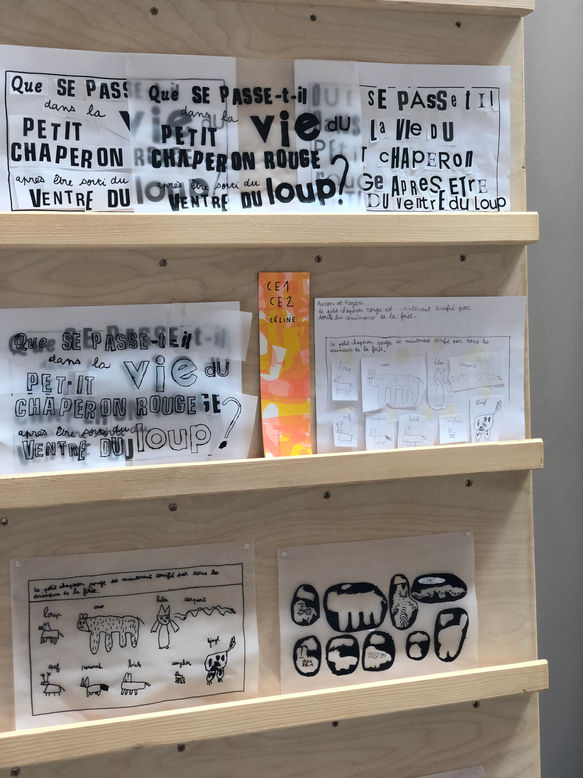 Que SE PASSE
dans la
PETIT
CHAPERON R
après être sorti du
VENTRE DU
Que SE PASSE-t-il
dans la
PETIT vie du
CHAPERON ROUGE
après être sorti du
VENTRE DU loup?
SE PASSE t Il
La Vie DU
T CHAPERON
Ge APRES ETRE
DU Ventre Du loup
Que SE PASSE-t-il
dans la vie du
PETIT
CHAPERON ROUGE
après être sorti du
VENTRE DU loup?
CE1
CE2
CÉLINE
le petit chaperon rouge est maintenant terrifié par
tous les animaux de la forêt.
le petit chaperon rouge est maintenant terrifié par tous les
animaux de la forêt.
loup ours serpent
le petit chaperon rouge est maintenant terrifié par tous les
animaux de la forêt.
loup ours serpent
cerf renard biche sanglier